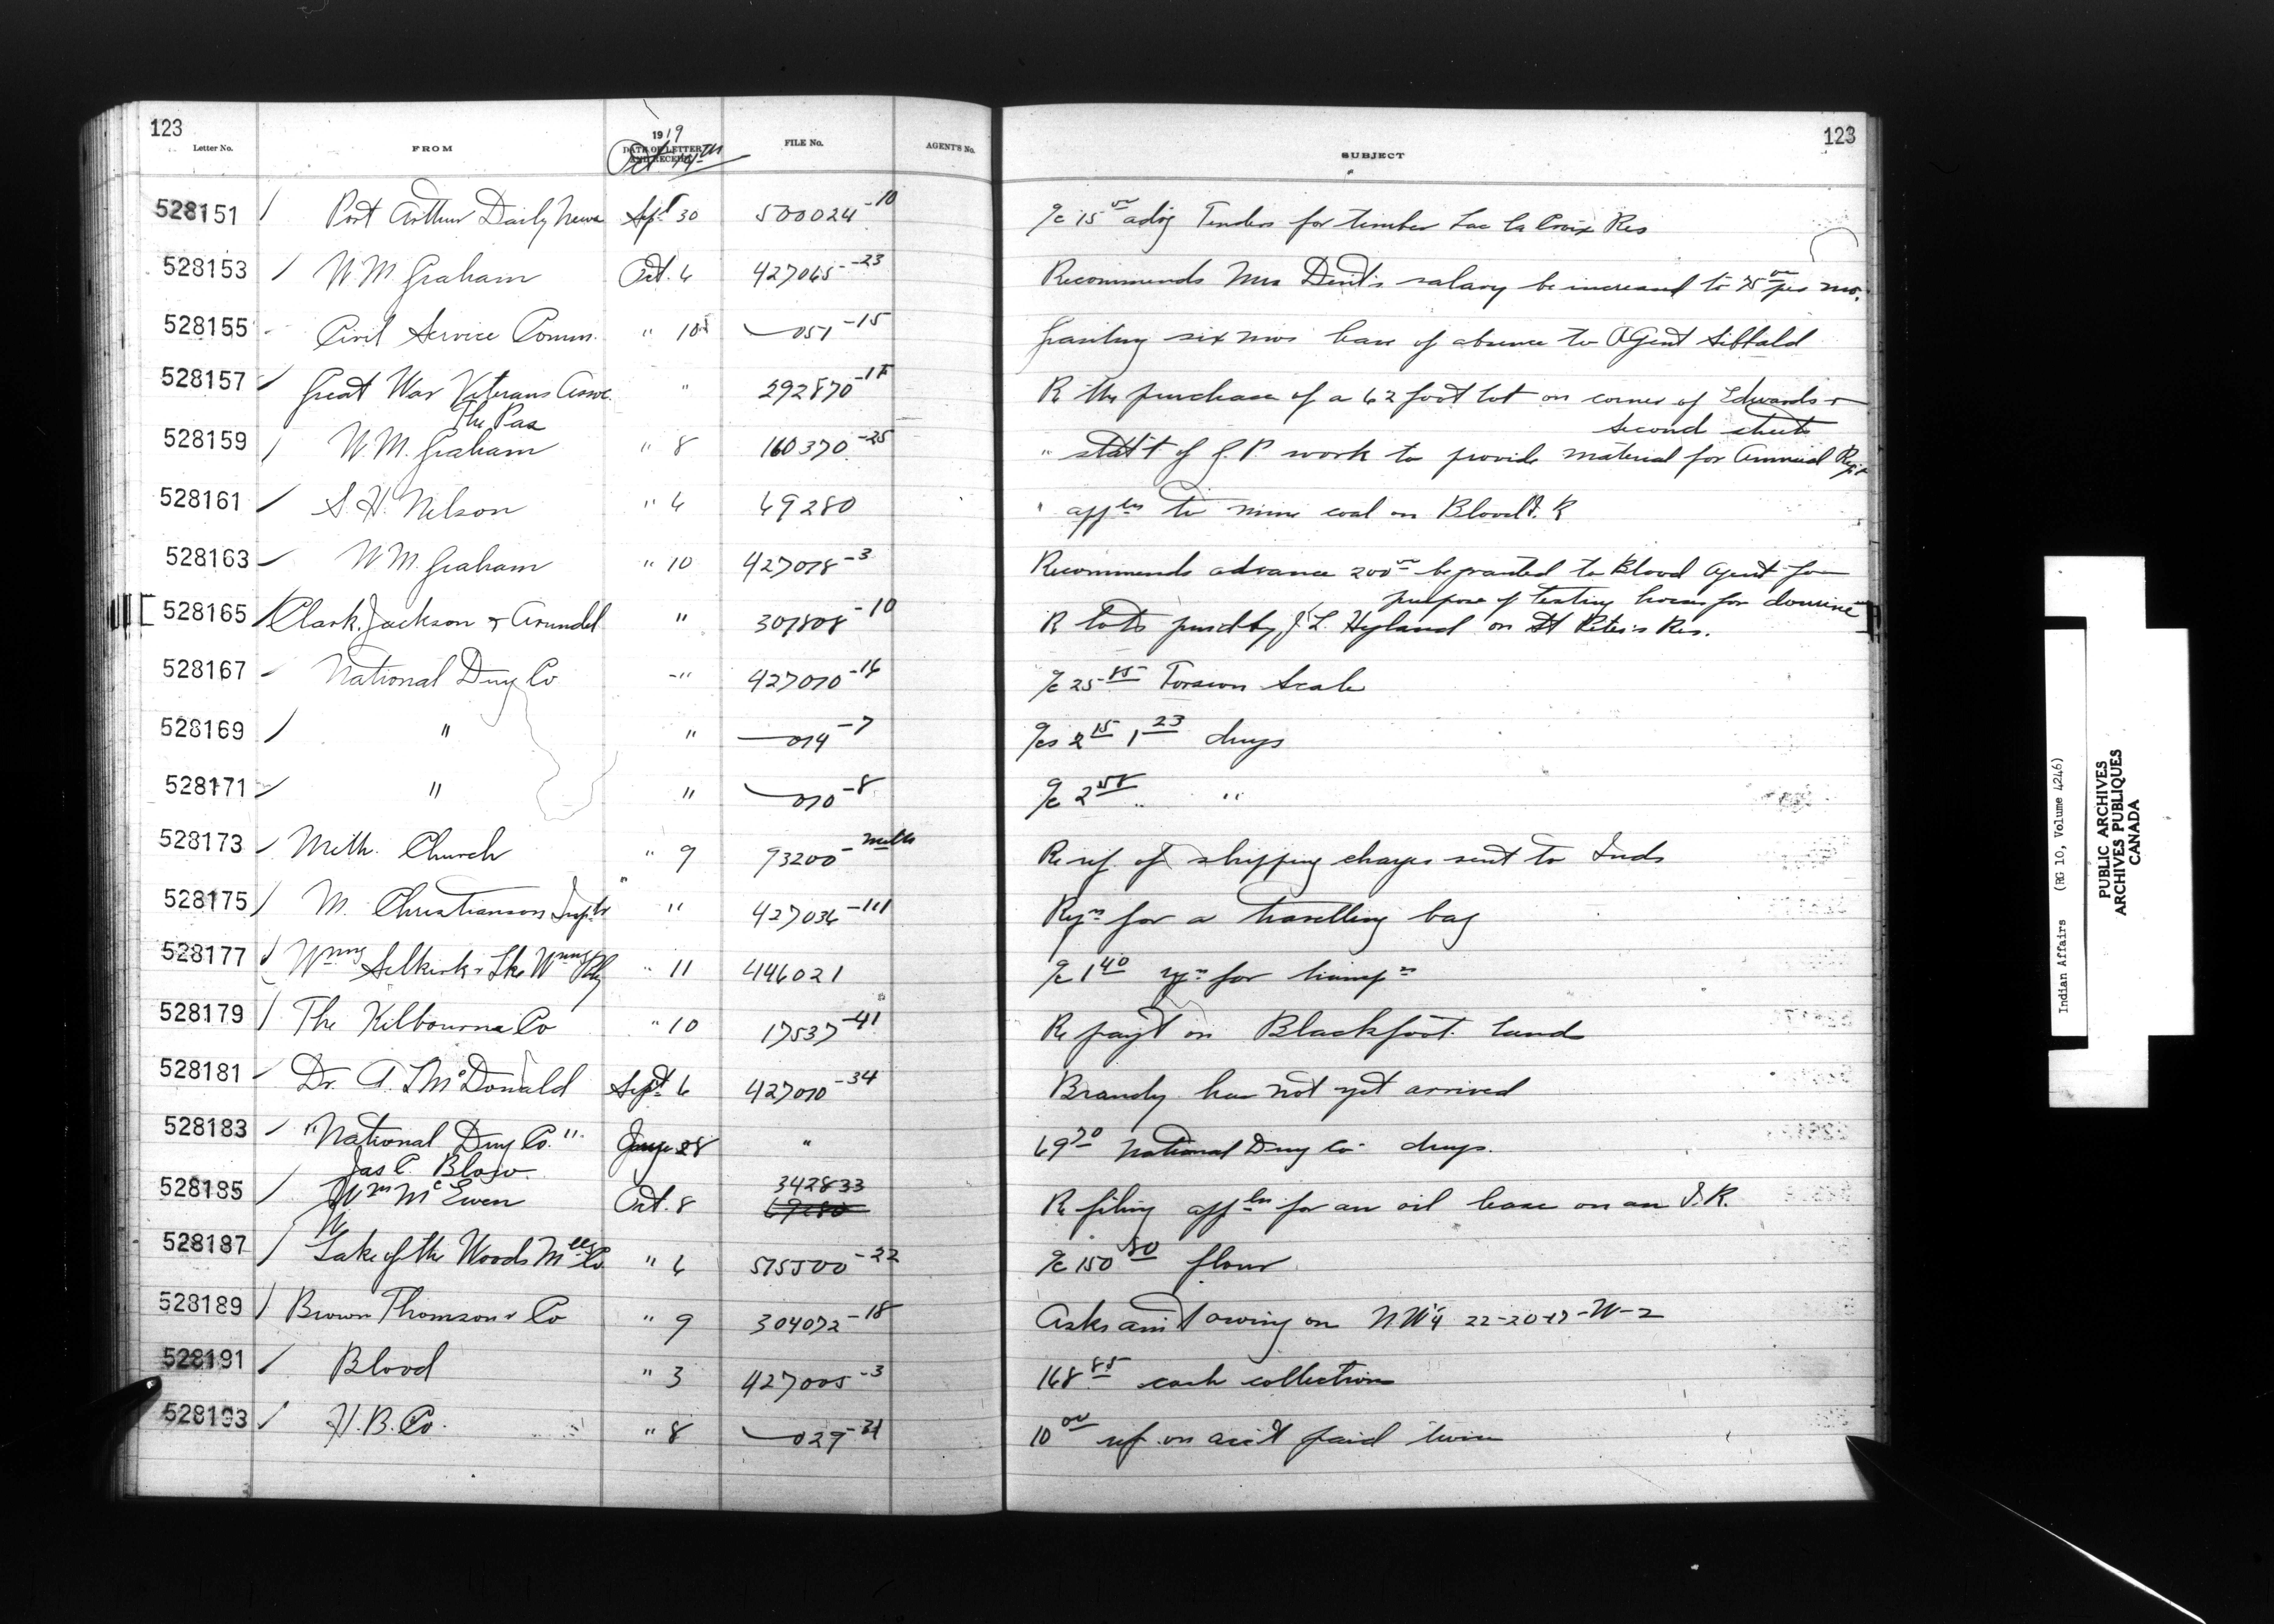 123
Letter No. FROM 1919 DATE OF LETTER AND RECEIPT FILE No. AGENT'S No. SUBJECT
Oct 14th
123
528151 Port Arthur Daily News Sept 30 500024-10 a/c 15 00 advg Tenders for timber Lac la Croix Res
528153 W.M. Graham Oct. 6 427065-23 Recommends Mrs Dent's salary be increased to 75 00 per mo.
528155 Civil Service Comm. " 10 051-15 Granting six mos leave of absence to Agent Sibbald
528157 Great War Veterans Assoc. " 292870- R the purchase of a 62 foot lot on corner of Edwards &
The Pas Second street
528159 W.M. Graham " 8 160370-25 " stat't of G.P. work to provide material for Annual Rept
528161 S.H. Nelson " 6 69280 " appln to mine coal on Blood I.R
528163 W.M. Graham " 10 427018-3 Recommends advance 200 00 be granted to Blood Agent for
purpose of testing horses for dourine
528165 Clark, Jackson & Arundel " 307808-10 R lots purd by J.L. Hyland on St Peter's Res.
528167 National Drug Co " 427010-16 a/c 25 85 Torsion Scale
528169 " " 014-7 a/cs 2 15 1 23 drugs
528171 " " 010-8 a/c 2 58 "
528173 Meth. Church " 9 93200- Re ref of shipping charges sent to Inds
528175 M. Christianson Inspr " 427036-111 Reqn for a travelling bag
528177 Wnng Selkirk & Lke Wnng Rly " 11 446021 a/c 1 40 for transpn
528179 The Kilbourne Co " 10 17537-41 Re payt on Blackfoot land
528181 Dr. A. L McDonald Sept 6 427010-34 Brandy has not yet arrived
528183 "National Drug Co." 28 " 69 70 National Drug Co drugs.
Jas C. Blow
528185 Wm McEwen Oct. 8 342833 69280 R filing appln for an oil lease on an I.R.
528187 Lake of the Woods Mllg Co " 6 515500-22 a/c 150 80 flour
528189 Brown Thomson & Co " 9 304072-18 Asks amt owing on NW¼ 22-20-17-W-2
528191 Blood " 3 427005-3 168 85 cash collections
528193 H.B. Co. " 8 029-31 10 00 ref. on acct paid twice
Indian Affairs (RG 10, Volume 4246)
PUBLIC ARCHIVES
ARCHIVES PUBLIQUES
CANADA